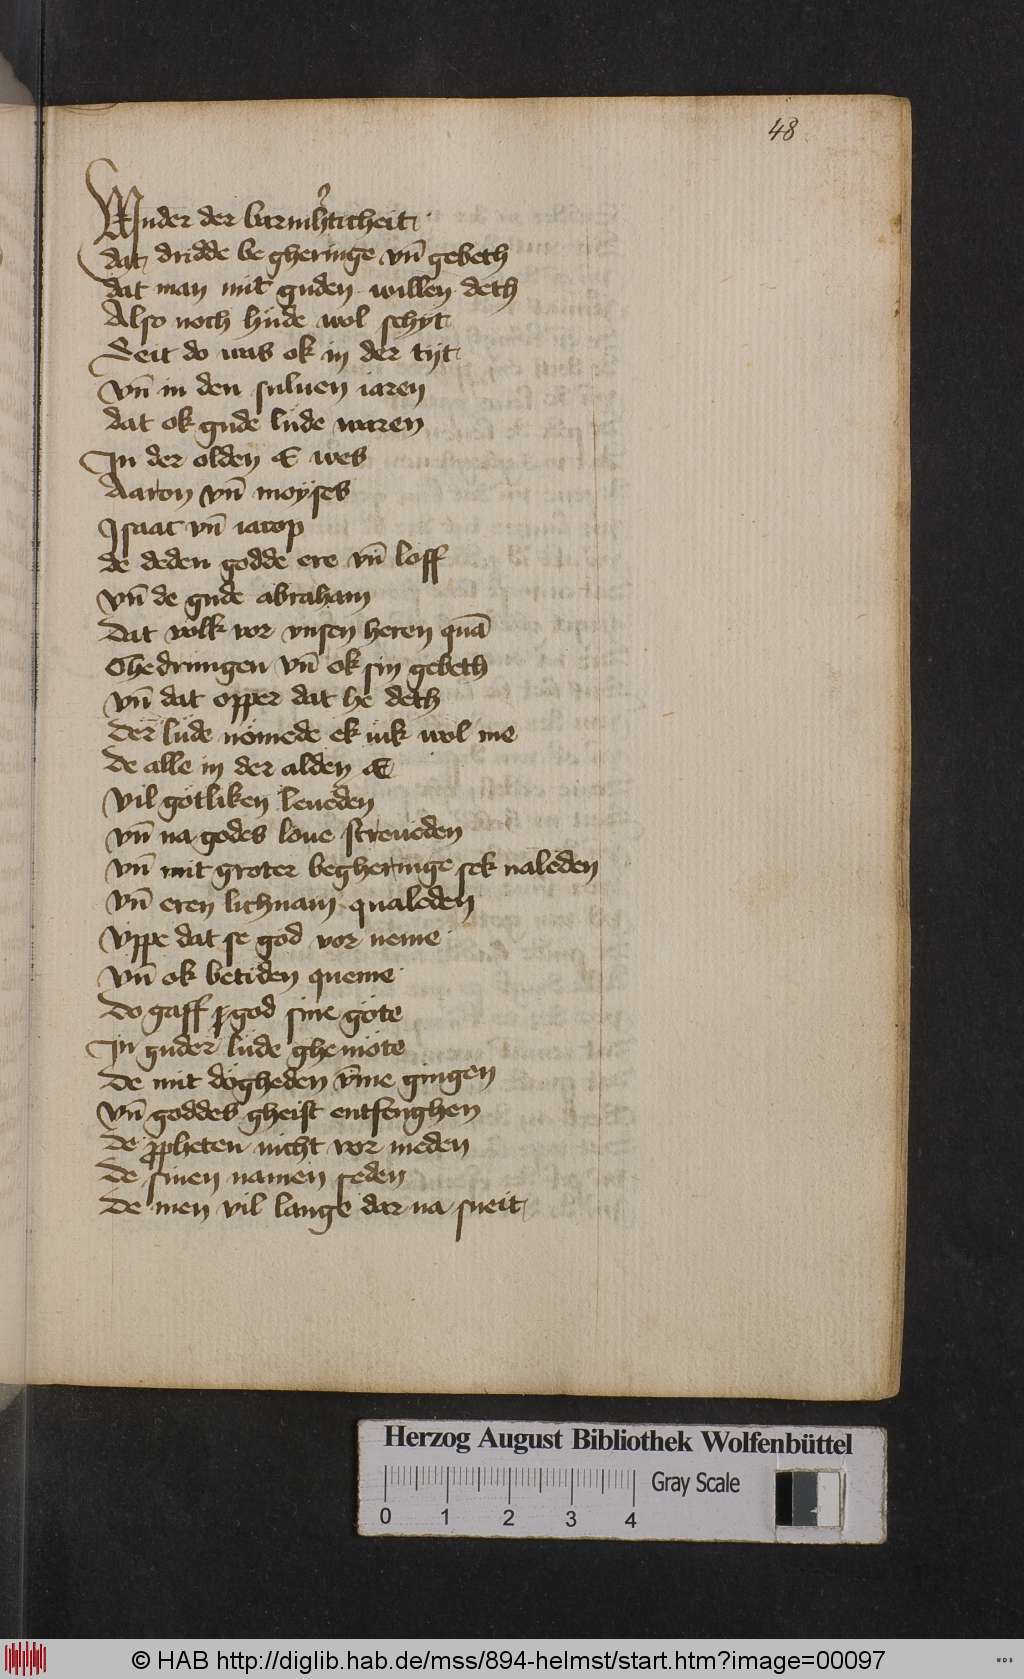 48
Winder der barmh'ticheit
dat dridde be gheringe vn̄ gebeth
dat man mit guden willen deth
Also noch hude wol schyt
Seit do was ok in der tijt
vn̄ in den suluen iaren
dat ok gude lude waren
In der olden E wes
Aaron vn̄ moyses
Isaac vn̄ iacop
de deden godde ere vn̄ loff
vn̄ de gude abraham
Dat volk vor vnsen heren quā
Ghedrungen vn̄ ok sin gebeth
vn̄ dat opper dat he deth
Der lude nomede ek iuk wol me
De alle in der alden E
Vil gotliken leueden
vn̄ na godes loue streueden
vn̄ mit groter begheringe sek naleden
vn̄ eren lichnam qualeden
Vppe dat se god vor neme
vn̄ ok betiden queme
Do gaff god sine gote
In guder lude ghemote
De mit dogheden v̄me gingen
vn̄ goddes gheist entfenghen
De ꝓpheten nicht vor meden
De sinen namen seden
De men vil lange dar na sneit
Herzog August Bibliothek Wolfenbüttel
Gray Scale
0 1 2 3 4
© HAB http://diglib.hab.de/mss/894-helmst/start.htm?image=00097